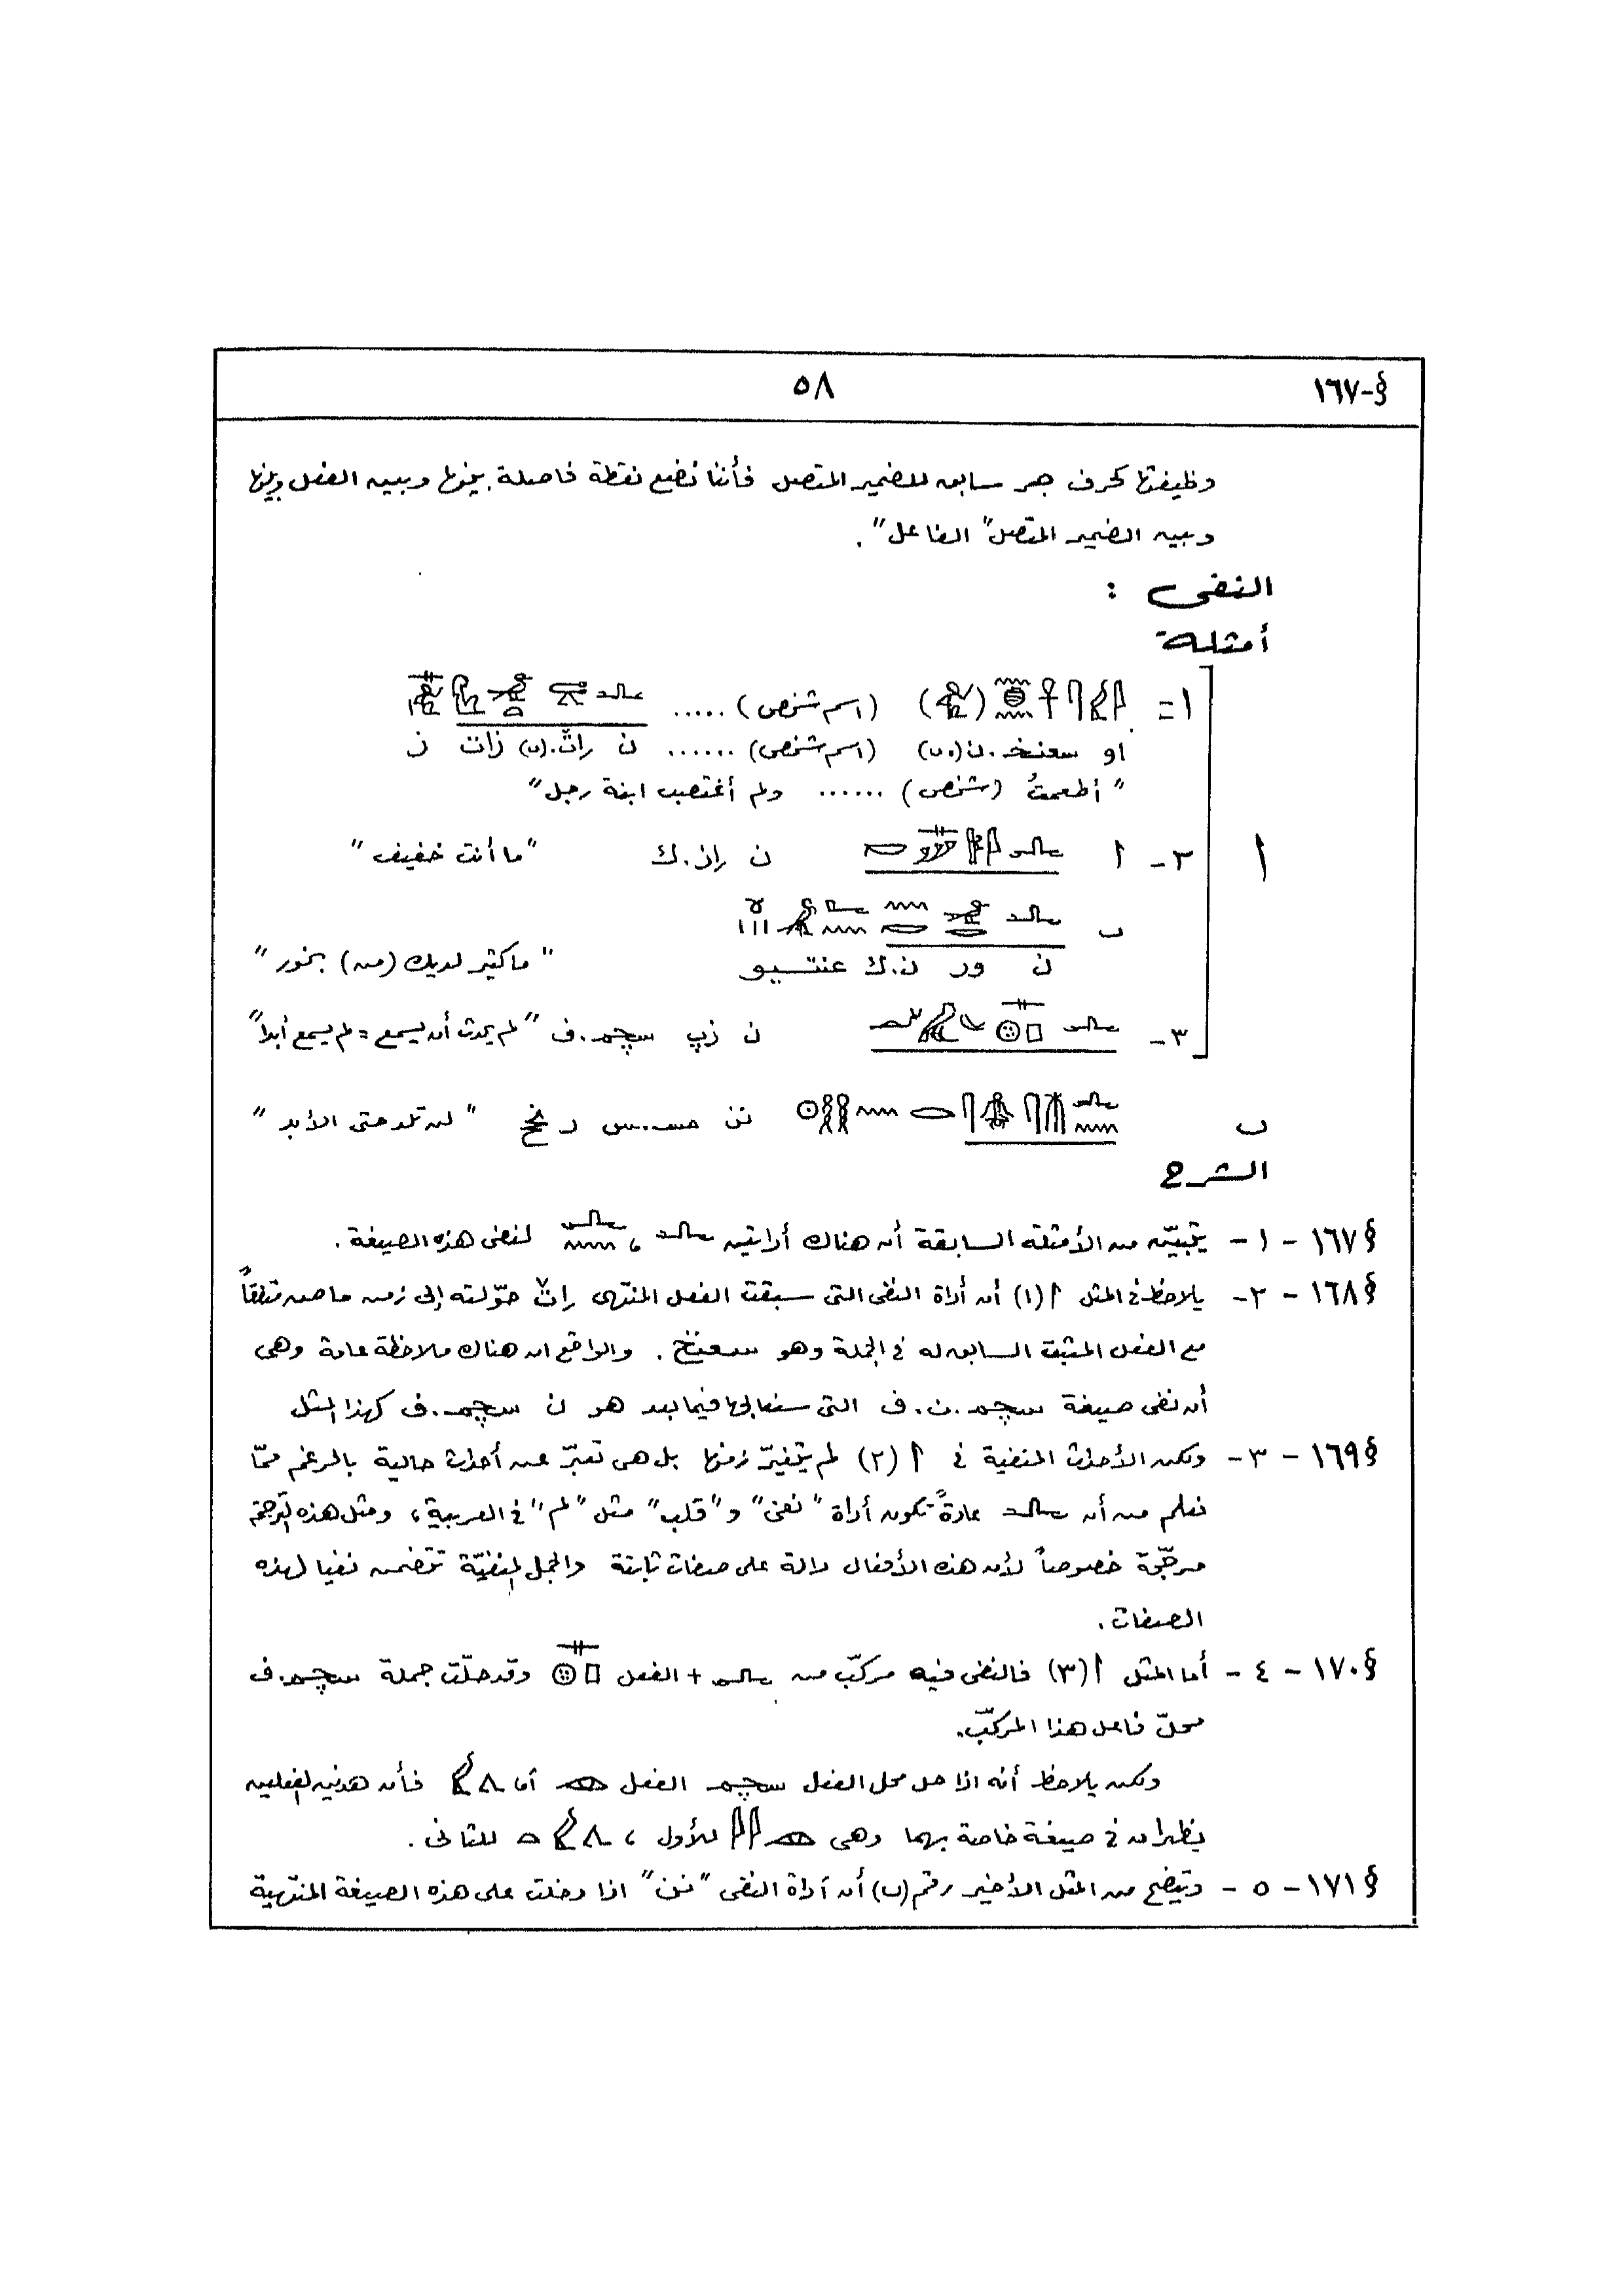 §-١٦٧
٥٨
وظيفتها كحرف جر سابق للضمير المتصل فأننا نضع نقطة فاصلة بينها وبين الفعل وبينها
وبين الضمير المتصل "الفاعل".
النفى :
أمثلة
١= (اسم شخص) .....
او سعنخ.ن(.ى) (اسم شخص) ...... ن زات ن
"أطعمتُ (شخص) ...... ولم أغتصب ابنة رجل"
أ
٢- أ ن .ك "ما أنت خفيف"
ب
ن ور ن.ك عنتيو "ما كثير لديك (من) بخور"
٣- ن زپ سچم.ف "لم يحدث أن يسمع = لم يسمع أبداً"
ب نن مس.س ر نحح "لن تلد حتى الأبد"
الشرح
§١٦٧ - ١- يتبيّن من الأمثلة السابقة أن هناك أداتين ، لنفى هذه الصيغة.
§١٦٨ - ٢- يلاحظ فى المثل أ(١) أن أداة النفى التى سبقت الفعل المنتهى حوّلته إلى زمن ماض متفقاً
مع الفعل المثبت السابق له فى الجملة وهو سعنخ. والواقع ان هناك ملاحظة عامة وهى
أن نفى صيغة سچم.ن.ف التى سنعالجها فيما بعد هو ن سچم.ف كهذا المثل
§١٦٩ - ٣- ولكن الأحداث المنفية فى أ (٢) لم يتغيّر زمنها بل هى تعبّر عن أحداث حالية بالرغم ممّا
نعلم من أن عادةً تكون أداة "نفى" و"قلب" مثل "لم" فى العربية، ومثل هذه الترجمة
مرجّحة خصوصاً لأن هذه الأفعال دالة على صفات ثابتة والجمل المنفيّة تتضمن نفيا لهذه
الصفات.
§١٧٠ - ٤- أما المثل أ(٣) فالنفى فيه مركّب من + الفعل وقد حلّت جملة سچم.ف
محلّ فاعل هذا المركّب.
ولكن يلاحظ أنه اذا حل محل الفعل سچم الفعل أو فأن هذين الفعلين
يظهران فى صيغة خاصة بهما وهى للأول ، للثانى.
§١٧١ - ٥- ويتضح من المثل الأخير رقم (ب) أن أداة النفى "نن" اذا دخلت على هذه الصيغة المنتهية